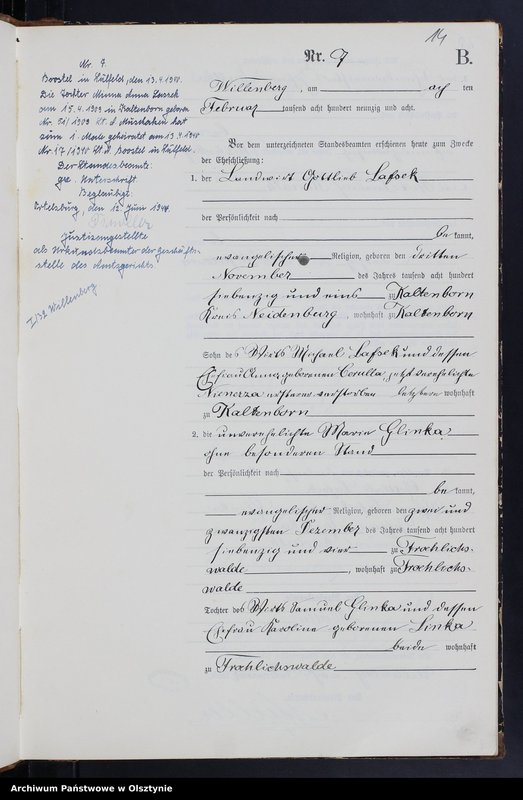 14
Nr. 7
B.
Nr. 7
Boostel in Hülfeld, den 13.4.1940.
Die Tochter Minna Anna Lassek
am 15.4.1909 in Kaltenborn geboren
Nr. 51/1909 St. A Muschaken hat
zum 1. Male geheiratet am 13.4.1940
Nr. 17/1940 St. A. Boostel in Hülfeld.
Der Standesbeamte:
gez. Unterschrift
Beglaubigt:
Ortelsburg, den 12. Juni 1944
Justizangestellte
als Urkundsbeamter der Geschäfts-
stelle des Amtsgerichts
I/32 Willenberg
Willenberg, am acht ten
Februar tausend acht hundert neunzig und acht.
Vor dem unterzeichneten Standesbeamten erschienen heute zum Zwecke
der Eheschließung:
1. der Landwirt Gottlieb Lassek
der Persönlichkeit nach
be kannt,
evangelischer Religion, geboren den dritten
November des Jahres tausend acht hundert
siebenzig und eins zu Kaltenborn
Kreis Neidenburg, wohnhaft zu Kaltenborn
Sohn des Wirts Michael Lassek und dessen
Ehefrau Anna geborenen Corulla, jetzt verehelichte
ersterer verstorben letztere wohnhaft
zu Kaltenborn
2. die unverehelichte Marie Glinka
ohne besonderen Stand
der Persönlichkeit nach
be kannt,
evangelischer Religion, geboren den zwei und
zwanzigsten Dezember des Jahres tausend acht hundert
siebenzig und vier zu Froehlichs-
walde, wohnhaft zu Froehlichs-
walde
Tochter des Wirts Samuel Glinka und dessen
Ehefrau Karoline geborenen Linka
beide wohnhaft
zu Froehlichswalde
Archiwum Państwowe w Olsztynie